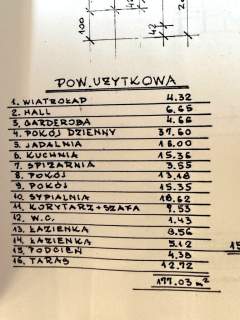 100
42
42
POW. UŻYTKOWA
1. WIATROŁAP 4.32
2. HALL 6.65
3. GARDEROBA 4.66
4. POKÓJ DZIENNY 37.60
5. JADALNIA 18.00
6. KUCHNIA 15.36
7. SPIŻARNIA 3.55
8. POKÓJ 13.18
9. POKÓJ 15.35
10. SYPIALNIA 18.62
11. KORYTARZ+SZAFA 9.53
12. W.C. 1.43
13. ŁAZIENKA 8.56
14. ŁAZIENKA 5.12
15. PODCIEŃ 4.38
16. TARAS 12.72
177.03 m²